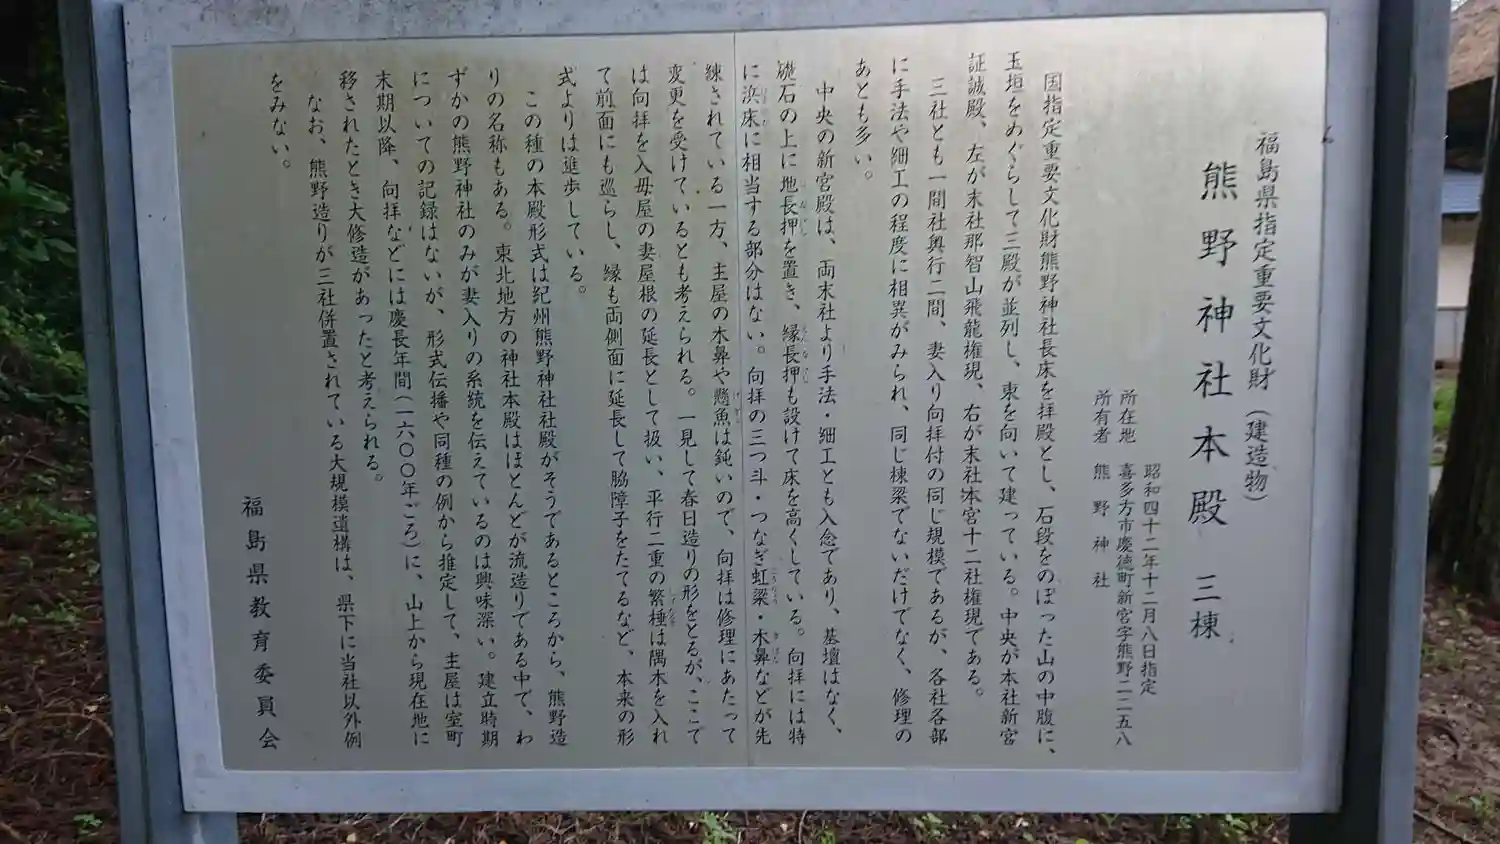 福島県指定重要文化財(建造物)
熊野神社本殿 三棟
昭和四十二年十二月八日指定
所在地 喜多方市慶徳町新宮字熊野二二五八
所有者 熊野神社
国指定重要文化財熊野神社長床を拝殿とし、石段をのぼった山の中腹に、
玉垣をめぐらして三殿が並列し、東を向いて建っている。中央が本社新宮
証誠殿、左が末社那智山飛龍権現、右が末社本宮十二社権現である。
三社とも一間社奥行二間、妻入り向拝付の同じ規模であるが、各社各部
に手法や細工の程度に相異がみられ、同じ棟梁でないだけでなく、修理の
あとも多い。
中央の新宮殿は、両末社より手法・細工とも入念であり、基壇はなく、
礎石の上に地長押を置き、縁長押も設けて床を高くしている。向拝には特
に浜床に相当する部分はない。向拝の三つ斗・つなぎ虹梁・木鼻などが先
練されている一方、主屋の木鼻や懸魚は鈍いので、向拝は修理にあたって
変更を受けているとも考えられる。一見して春日造りの形をとるが、ここで
は向拝を入母屋の妻屋根の延長として扱い、平行二重の繁棰は隅木を入れ
て前面にも巡らし、縁も両側面に延長して脇障子をたてるなど、本来の形
式よりは進歩している。
この種の本殿形式は紀州熊野神社社殿がそうであるところから、熊野造
りの名称もある。東北地方の神社本殿はほとんどが流造りである中で、わ
ずかの熊野神社のみが妻入りの系統を伝えているのは興味深い。建立時期
についての記録はないが、形式伝播や同種の例から推定して、主屋は室町
末期以降、向拝などには慶長年間(一六〇〇年ごろ)に、山上から現在地に
移されたとき大修造があったと考えられる。
なお、熊野造りが三社併置されている大規模遺構は、県下に当社以外例
をみない。
福島県教育委員会